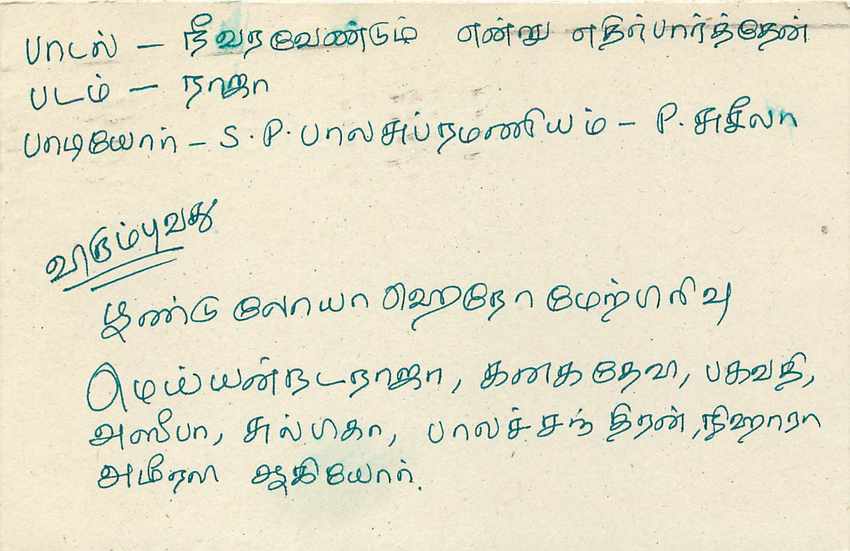 பாடல் – நீ வரவேண்டும் என்று எதிர்பார்த்தேன்
படம் – ராஜா
பாடியோர் – S.P. பாலசுப்ரமணியம் – P. சுசீலா
விரும்புவது
லோயா மேற்பிரிவு
மெய்யன்நடராஜா, கனகதேவா, பகவதி,
அஸீபா, பாலச்சந்திரன், நிஹாரா
அமீரலி ஆகியோர்.